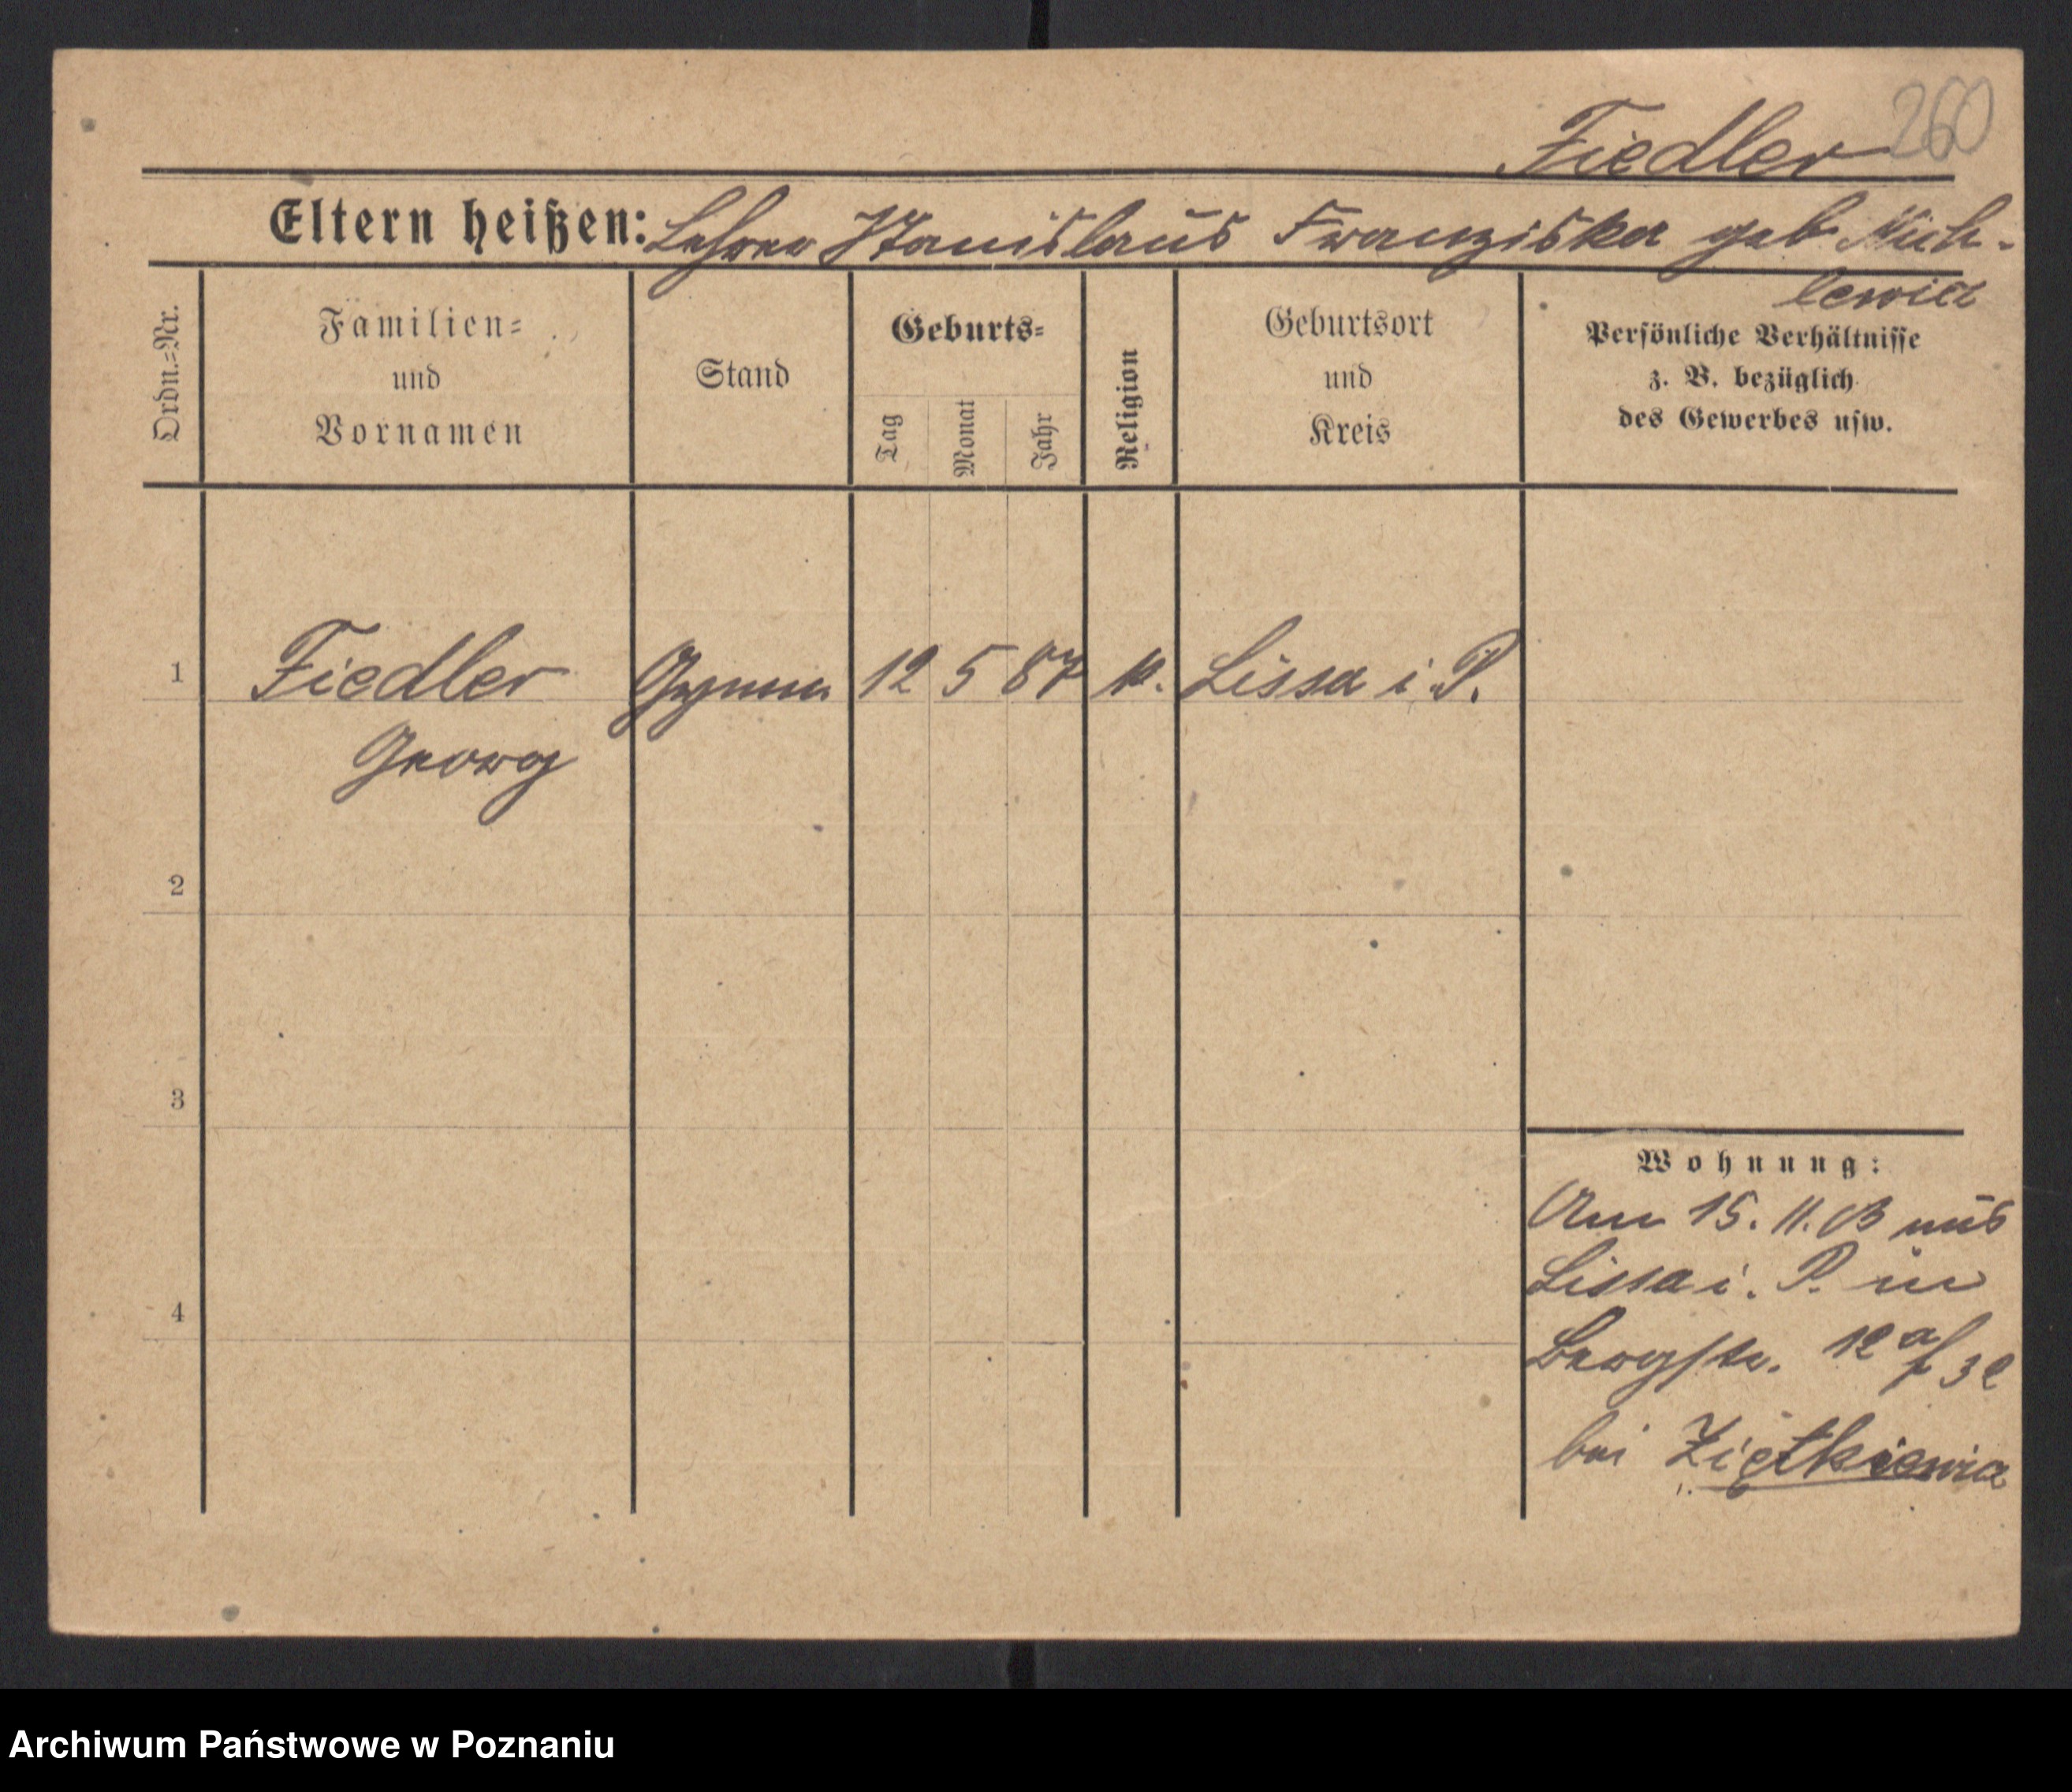 260
Fiedler
Eltern heißen: Lehrer Stanislaus Franziska geb. Mich-
lewicz
Ordn.-Nr.
Familien-
und
Vornamen
Stand
Geburts-
Tag
Monat
Jahr
Religion
Geburtsort
und
Kreis
Persönliche Verhältnisse
z. B. bezüglich
des Gewerbes usw.
1 Fiedler Gymn. 12 5 87 k. Lissa i. P.
Georg
2
3
4
Wohnung:
Am 15. 11. 03 aus
Lissa i. P. in
Bergstr. 12 a
bei Ziętkiewicz
Archiwum Państwowe w Poznaniu